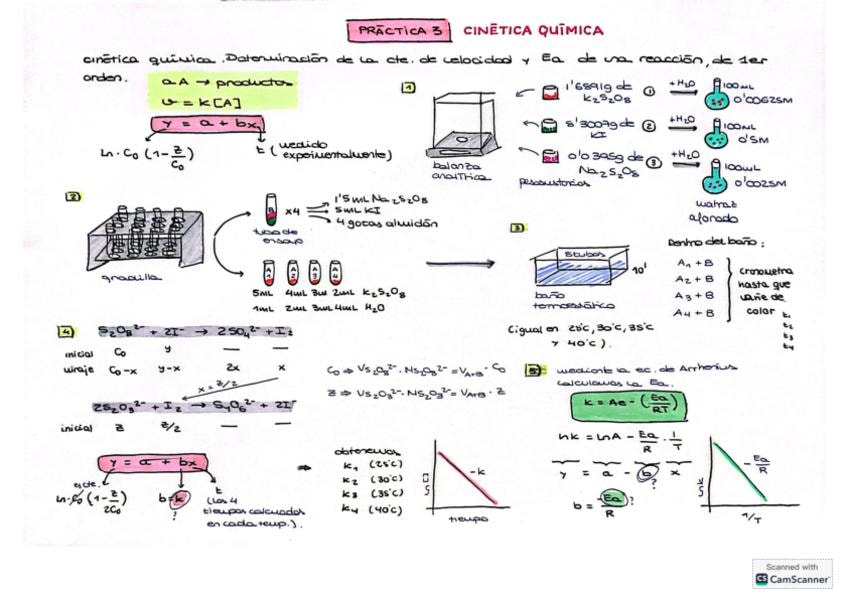 PRÁCTICA 3 CINÉTICA QUÍMICA
cinética química. Determinación de la cte. de velocidad y Ea de una reacción, de 1er
orden.
aA → productos
v = k[A]
y = a + bx
Ln · C₀ (1 - Z/C₀)
t (medido
experimentalmente)
1
balanza
analítrica
1'6891g de
K₂S₂O₈
① +H₂O → 100mL
0'0625M
8'3007g de
KI
② +H₂O → 100mL
0'5M
0'0395g de
Na₂S₂O₈
③ +H₂O → 100mL
0'0025M
pesasustancias
matraz
aforado
2
gradilla
B
x4
tubo de
ensayo
1'5mL Na₂S₂O₈
5mL KI
4 gotas almidón
A1 A2 A3 A4
5mL 4mL 3mL 2mL K₂S₂O₈
1mL 2mL 3mL 4mL H₂O
3
8 tubos
10'
baño
termostático
(igual en 25°C, 30°C, 35°C
y 40°C).
Dentro del baño:
A₁ + B
A₂ + B
A₃ + B
A₄ + B
cronometra
hasta que
varíe de
color
t₁
t₂
t₃
t₄
4
S₂O₈²⁻ + 2I⁻ → 2SO₄²⁻ + I₂
inicial C₀ y — —
viraje C₀-x y-x 2x x
x = Z/2
2S₂O₃²⁻ + I₂ → S₄O₆²⁻ + 2I⁻
inicial Z Z/2 — —
C₀ ⇒ VS₂O₈²⁻ · MS₂O₈²⁻ = V_A+B · C₀
Z ⇒ VS₂O₃²⁻ · MS₂O₃²⁻ = V_A+B · Z
y = a + bx
es cte.
Ln · C₀ (1 - Z/2C₀)
b = k
?
t
(Los 4
tiempos calculados
en cada temp.).
⇒
obtenemos
K₁ (25°C)
K₂ (30°C)
K₃ (35°C)
K₄ (40°C)
-k
tiempo
5 mediante la ec. de Arrhenius
calculamos la Ea.
K = Ae - (Ea/RT)
lnk = lnA - Ea/R · 1/T
y = a - b x
?
b = -Ea/R ?
- Ea/R
1/T
Scanned with
CS CamScanner